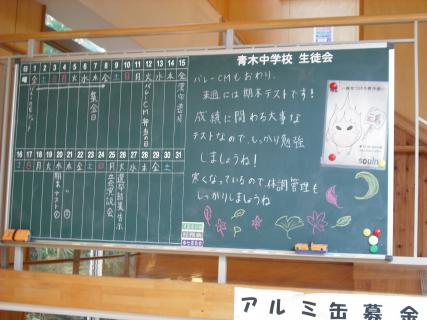 青木中学校 生徒会
バレーCMもおわり、
来週には期末テストです!
成績に関わる大事な
テストなので、しっかり勉強
しましょうね!
寒くなっているので、体調管理も
しっかりしましょうね
日 1 2 3 4 5 6 7 8 9 10 11 12 13 14 15
曜 金 土 日 月 火 水 木 金 土 日 月 火 水 木 金
集金日
バレーCM 弁当の日
16 17 18 19 20 21 22 23 24 25 26 27 28 29 30 31
土 日 月 火 水 木 金 土 日 月 火 水 木 金 土
期末テスト①
②
立会演説会
選挙結果告示
アルミ缶募金